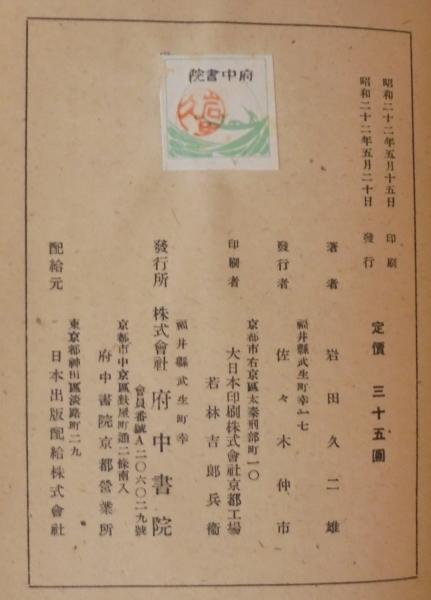 府中書院
昭和二十二年五月十五日 印刷
昭和二十二年五月二十日 發行
定價 三十五圓
著者 岩田久二雄
福井縣武生町幸一七
發行者 佐々木仲市
京都市右京區太秦刑部町一〇
印刷者 大日本印刷株式會社京都工場
若林吉郎兵衞
福井縣武生町幸
發行所 株式會社 府中書院
會員番號A二〇六〇二九號
京都市中京區麩屋町通二條南入
府中書院京都營業所
東京都神田區淡路町二ノ九
配給元 日本出版配給株式會社